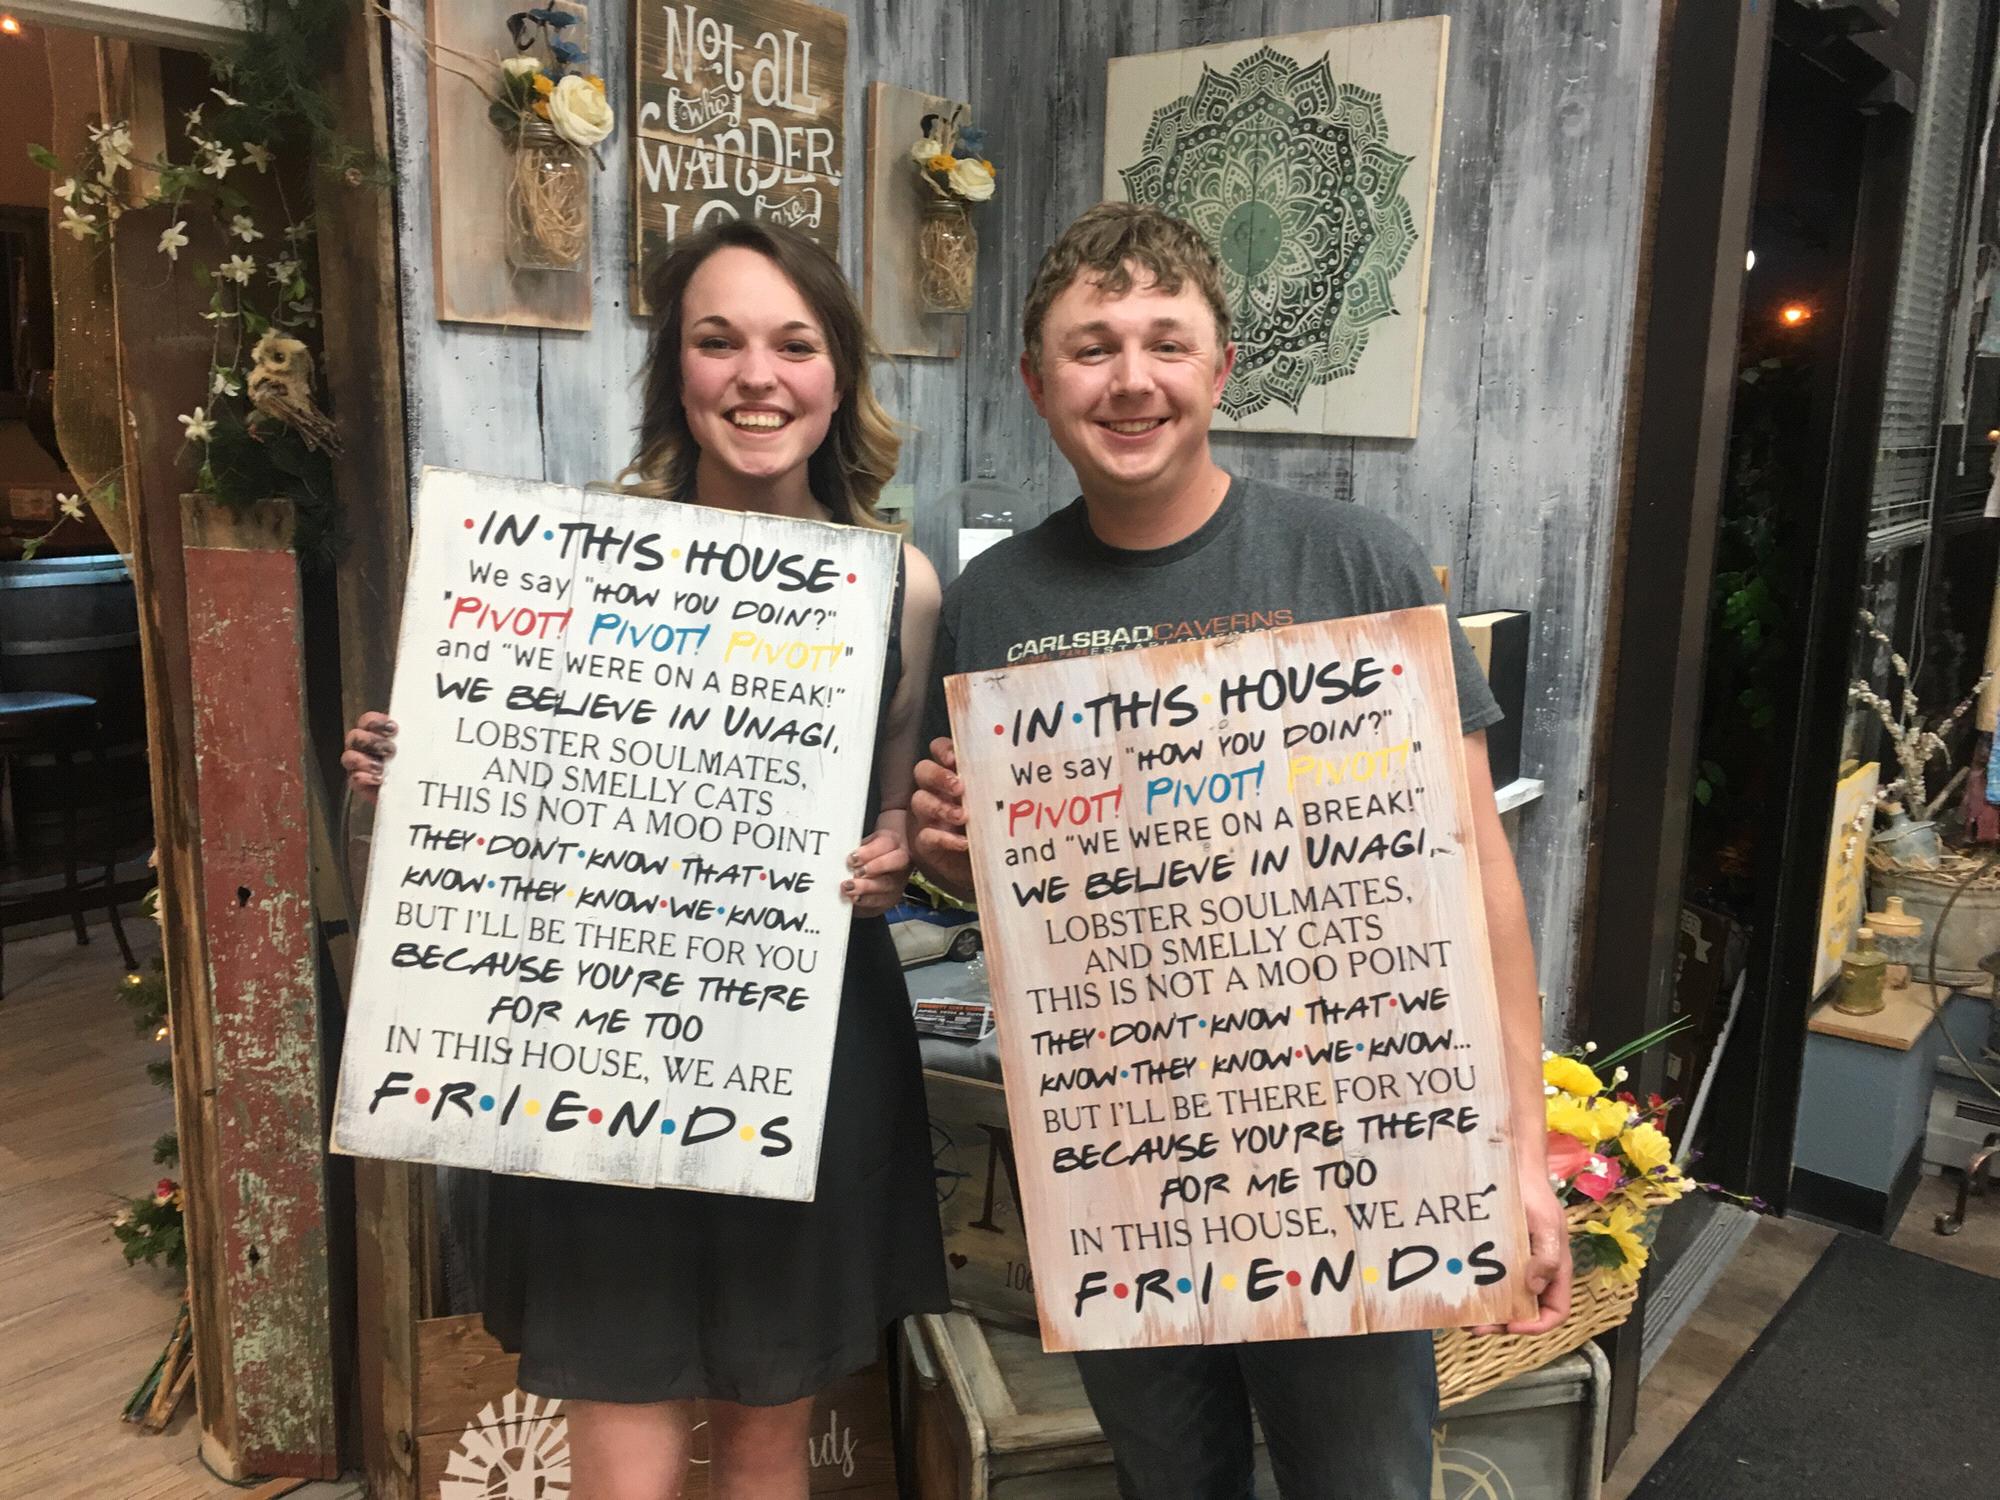 Not all
who
WANDER
are
•IN•THIS•HOUSE•
We say "HOW YOU DOIN?"
"PIVOT! PIVOT! PIVOT!"
and "WE WERE ON A BREAK!"
WE BELIEVE IN UNAGI,
LOBSTER SOULMATES,
AND SMELLY CATS
THIS IS NOT A MOO POINT
THEY•DON'T•KNOW•THAT•WE
KNOW•THEY•KNOW•WE•KNOW...
BUT I'LL BE THERE FOR YOU
BECAUSE YOU'RE THERE
FOR ME TOO
IN THIS HOUSE, WE ARE
F•R•I•E•N•D•S
CARLSBAD CAVERNS
•IN•THIS•HOUSE•
We say "HOW YOU DOIN?"
"PIVOT! PIVOT! PIVOT!"
and "WE WERE ON A BREAK!"
WE BELIEVE IN UNAGI,
LOBSTER SOULMATES,
AND SMELLY CATS
THIS IS NOT A MOO POINT
THEY•DON'T•KNOW•THAT•WE
KNOW•THEY•KNOW•WE•KNOW...
BUT I'LL BE THERE FOR YOU
BECAUSE YOU'RE THERE
FOR ME TOO
IN THIS HOUSE, WE ARE
F•R•I•E•N•D•S